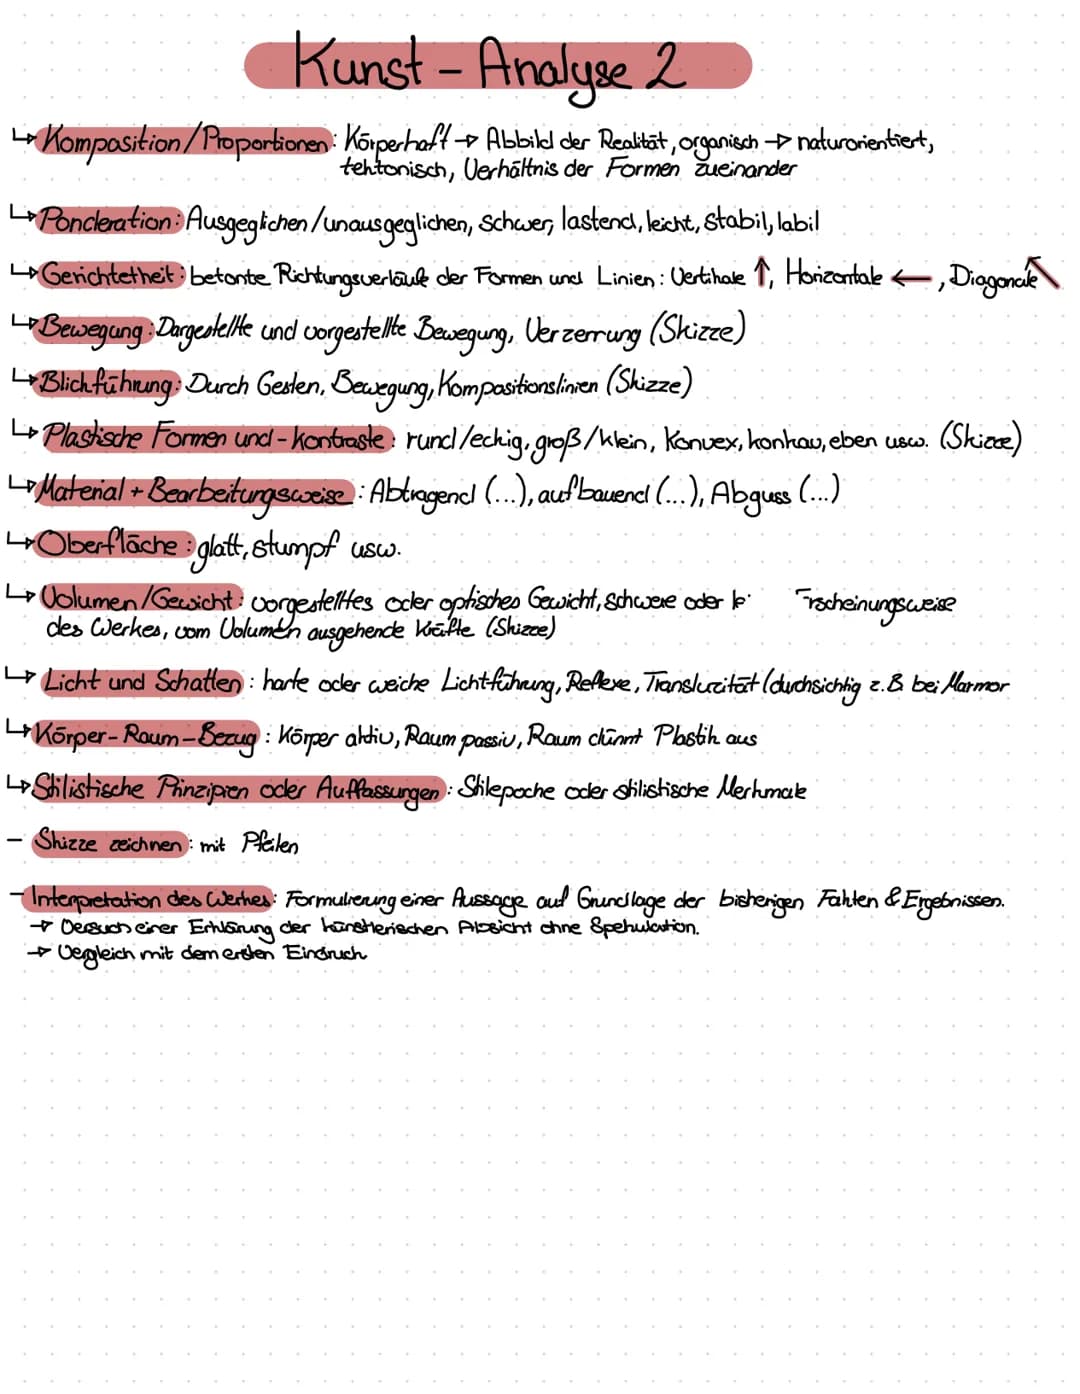 Kunst - Analyse 2
↳ Komposition/Proportionen: Körperhaft → Abbild der Realität, organisch → naturorientiert,
tektonisch, Verhältnis der Formen zueinander
↳ Ponderation: Ausgeglichen/unausgeglichen, schwer, lastend, leicht, stabil, labil
↳ Gerichtetheit: betonte Richtungsverläufe der Formen und Linien: Vertikale ↑, Horizontale ←, Diagonale ↖
↳ Bewegung: Dargestellte und vorgestellte Bewegung, Verzerrung (Skizze)
↳ Blickführung: Durch Gesten, Bewegung, Kompositionslinien (Skizze)
↳ Plastische Formen und -kontraste: rund/eckig, groß/klein, konvex, konkav, eben usw. (Skizze)
↳ Material + Bearbeitungsweise: Abtragend (...), aufbauend (...), Abguss (...)
↳ Oberfläche: glatt, stumpf usw.
↳ Volumen/Gewicht: vorgestelltes oder optisches Gewicht, schwere oder Erscheinungsweise
des Werkes, vom Volumen ausgehende Kräfte (Skizze)
↳ Licht und Schatten: harte oder weiche Lichtführung, Reflexe, Transluzität (durchsichtig z.B bei Marmor
↳ Körper-Raum-Bezug: Körper aktiv, Raum passiv, Raum dünnt Plastik aus
↳ Stilistische Prinzipien oder Auffassungen: Stilepoche oder stilistische Merkmale
- Skizze zeichnen: mit Pfeilen
- Interpretation des Werkes: Formulierung einer Aussage auf Grundlage der bisherigen Fakten & Ergebnissen.
→ Versuch einer Erklärung der künstlerischen Absicht ohne Spekulation.
→ Vergleich mit dem ersten Eindruck